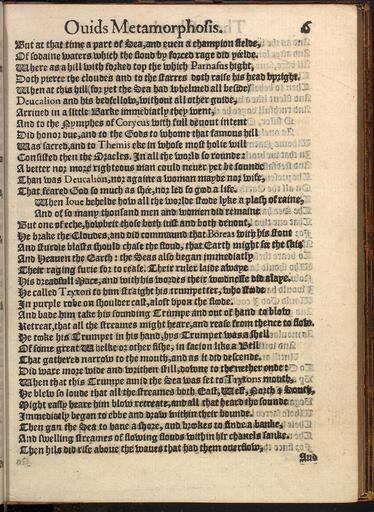 Ouids Metamorphosis. 6
But at that time a part of Sea, and euen a champion fielde,
Of sodaine waters which the floud by forced rage did yielde.
Where as a hill with forked top the which Parnasus hight,
Doth pierce the cloudes and to the starres doth raise his head vpright.
When at this hill (for yet the Sea had whelmed all beside)
Deucalion and his bedfellow, without all other guide,
Arriued in a little Barke immediatly they went,
And to the Nymphes of Coryeus with full deuout intent
Did honor due, and to the Gods to whome that famous hill
Was sacred, and to Themis eke in whose most holie will
Consisted then the Oracles. In all the world so rounde
A better nor more righteous man could neuer yet be founde
Than was Deucalion, nor againe a woman mayde nor wife,
That feared God so much as shée, nor led so good a life.
When Ioue behelde how all the worlde stoode lyke a plash of raine,
And of so many thousand men and women did remaine
But one of eche, howbeit those both iust and both deuout,
He brake the Cloudes, and did commaund that Boreas with his stout
And sturdie blasts should chase the floud, that Earth might sée the skie
And Heauen the Earth: the Seas also began immediatly
Their raging furie for to cease. Their ruler laide awaye
His dreadfull Mace, and with his wordes their woodnesse did alaye.
He called Tryton to him straight his trumpetter, who stoode
In purple robe on shoulder cast, aloft vpon the floode.
And bade him take his sounding Trumpe and out of hand to blow
Retreat, that all the streames might heare, and cease from thence to flow.
He toke his Trumpet in his hand, hys Trumpet was a shell
Of some great Whelke or other fishe, in facion like a Bell
That gathered narrow to the mouth, and as it did descende
Did waxe more wide and writhen still, downe to the nether ende:
When that this Trumpe amid the Sea was set to Trytons mouth,
He blew so loude that all the streames both East, West, North & South,
Might easly heare him blow retreate, and all that heard the sounde
Immediatly began to ebbe and draw within their bounde.
Then gan the Sea to haue a shore, and brokes to finde a banke,
And swelling streames of flowing flouds within hir chanels sanke.
Then hils did rise aboue the waues that had them ouerflow,
And